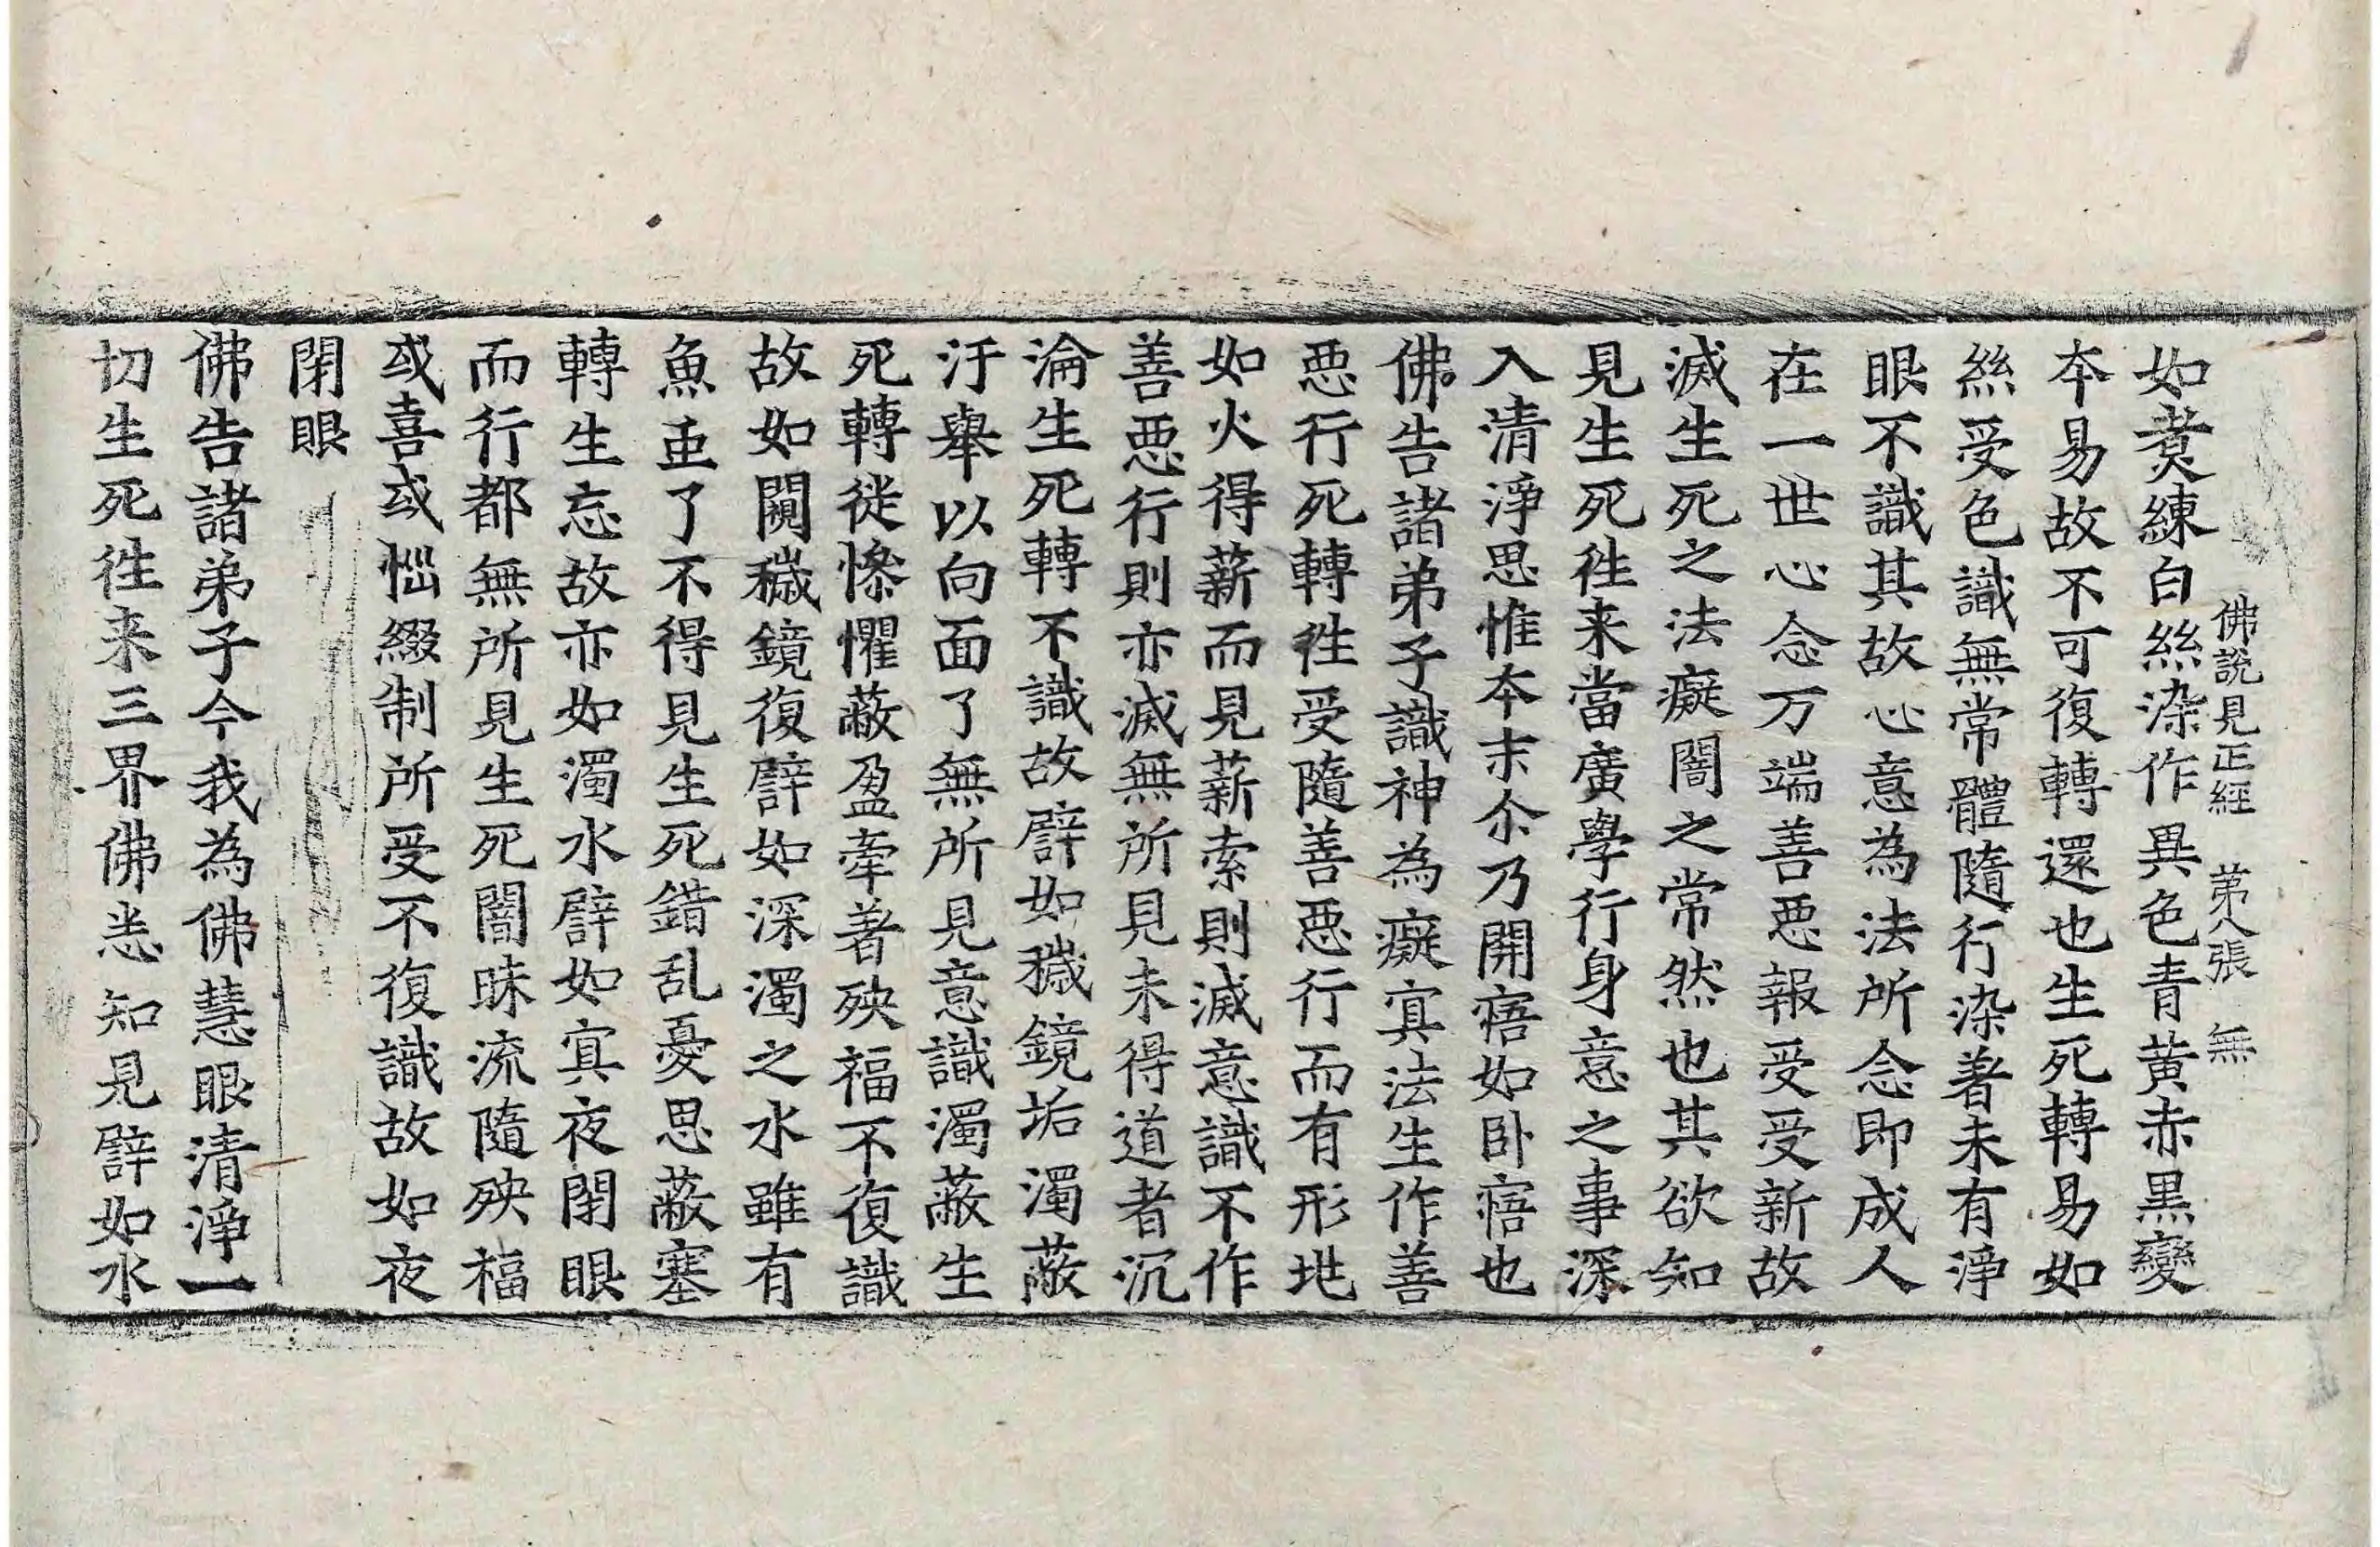 佛說見正經 苐八張 無
如煑練白絲染作異色青黃赤黒變
夲易故不可復轉還也生死轉易如
絲受色識無常體隨行染著未有淨
眼不識其故心意為法所念即成人
在一世心念万端善惡報受受新故
滅生死之法癡闇之常然也其欲知
見生死徃来當廣學行身意之事深
入清淨思惟夲末尒乃開寤如卧寤也
佛告諸弟子識神為癡冥法生作善
惡行死轉徃受隨善惡行而有形地
如火得薪而見薪索則滅意識不作
善惡行則亦滅無所見未得道者沉
淪生死轉不識故譬如穢鏡垢濁蔽
汙舉以向面了無所見意識濁蔽生
死轉徙慘懼蔽盈牽著殃福不復識
故如闚穢鏡復譬如深濁之水雖有
魚䖝了不得見生死錯乱憂思蔽塞
轉生忘故亦如濁水譬如冥夜閇眼
而行都無所見生死闇昧流隨殃福
或喜或㤕綴制所受不復識故如夜
閇眼
佛告諸弟子今我為佛慧眼清淨一
切生死徃来三界佛悉知見譬如水